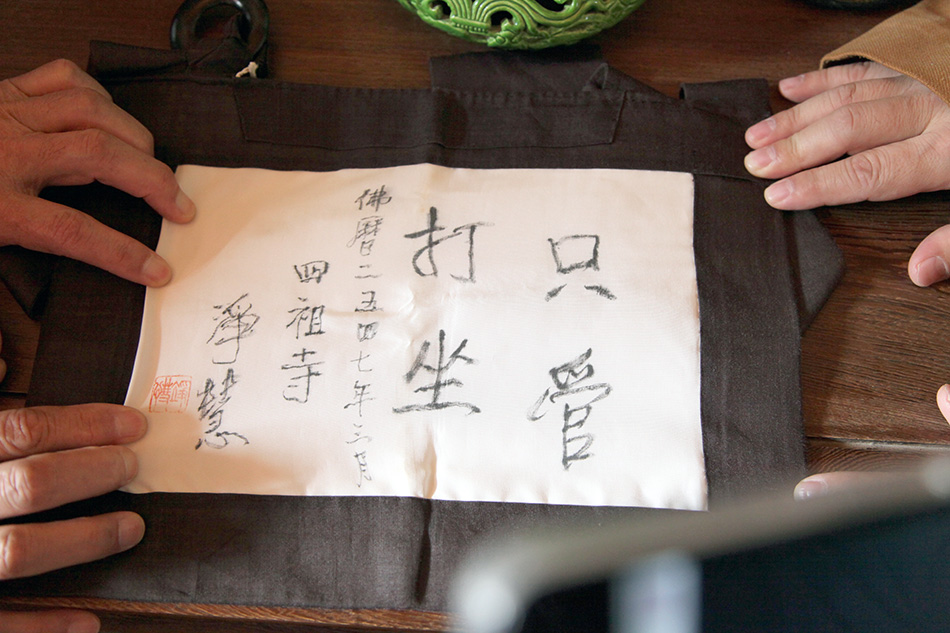 只管
打坐
佛曆二五四七年三月
四祖寺
淨慧